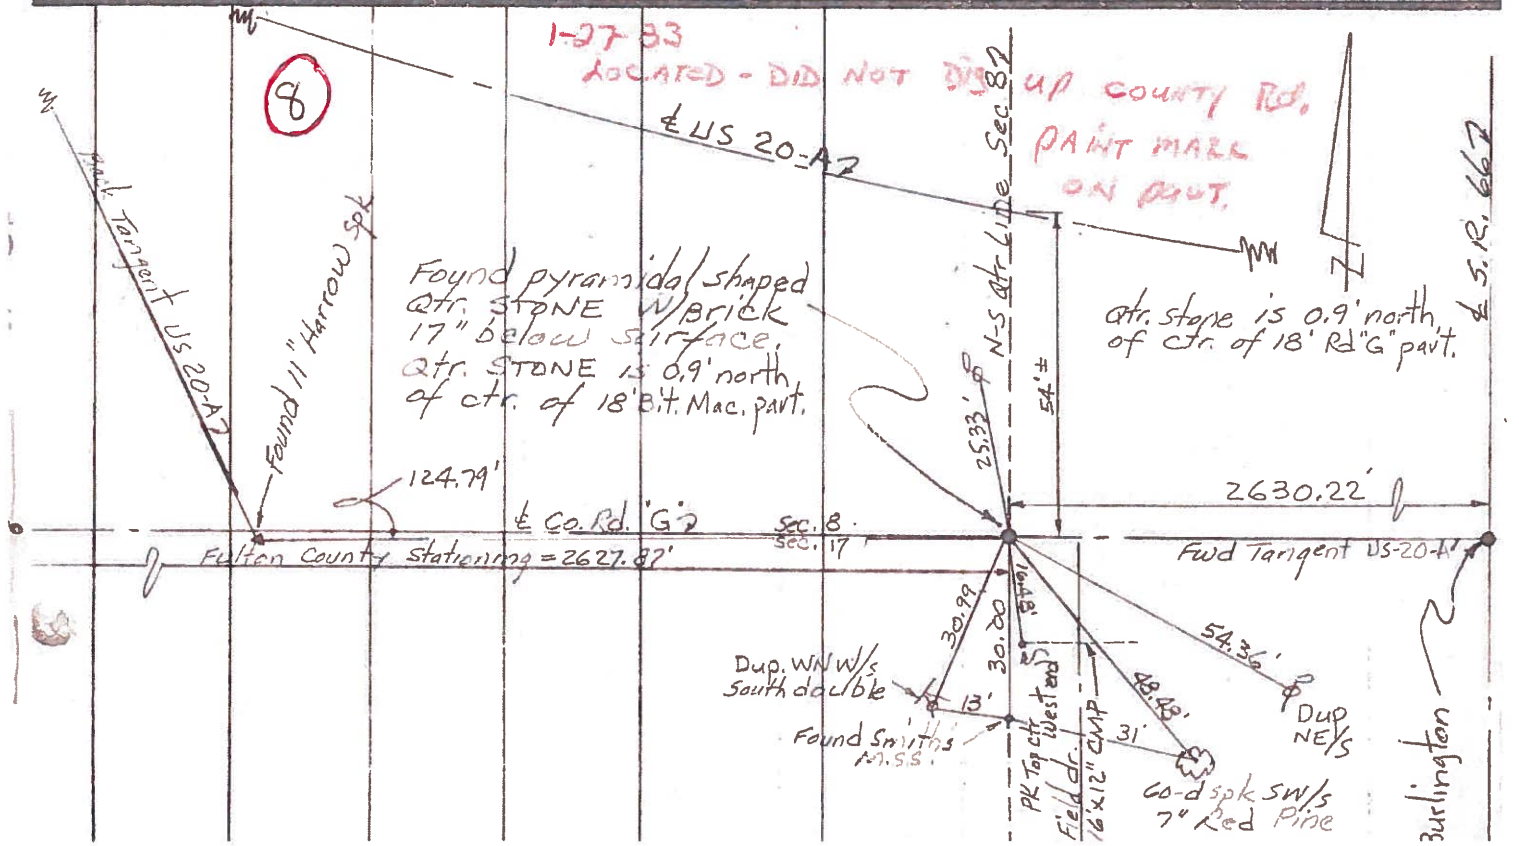 1-27-83
LOCATED - DID NOT DIG UP COUNTY Rd.
PAINT MARK
ON PAVT.
8
℄ US 20-A
N-S Qtr Line Sec 8
℄ S.R. 66
Back Tangent US 20-A
Found 11" Harrow Spk
Found pyramidal shaped
Qtr. STONE W/Brick
17" below surface.
Qtr. STONE is 0.9' north
of ctr. of 18' Bit. Mac. pavt.
Qtr. stone is 0.9' north
of ctr. of 18' Rd "G" pavt.
25.33'
54'±
124.79'
2630.22'
℄ Co. Rd. "G"
Sec. 8
Sec. 17
Fulton County Stationing = 2627.87'
Fwd Tangent US-20-A
30.99
30.00
16.48'
54.36'
48.48'
Dup. WNW/s
South double
13'
31'
Found Smiths
M.S.S.
PK Top Ctr
West end
Field dr.
16'x12" CMP
Dup
NE/s
60-d spk SW/s
7" Red Pine
Burlington